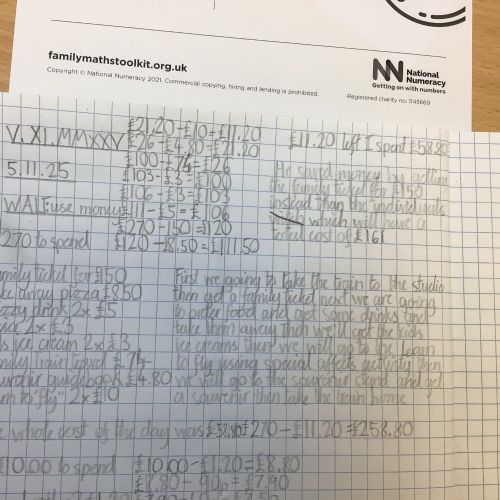 familymathstoolkit.org.uk
Copyright © National Numeracy 2021. Commercial copying, hiring and lending is prohibited.
National
Numeracy
Getting on with numbers
Registered charity no: 1145669
V. XI. MMXXV
5.11.25
WALT: use money
270 to spend
£21.20-£10=£11.20
£26-£4.80=£21.20
£100-£74=£26
£103-£3=£100
£106-£3=£103
£111-£5=£106
£270-150=£120
£120-£8.50=£111.50
£11.20 left I spent £58.80
He saved money by getting
the family ticket for £150
instead than the individuals
which will have a
total cost of £161
amily ticket for £150
ke away pizza £8.50
zzy drink 2x £5
2x £3
s ice cream 2x £3
mily train travel £74
guidebook £4.80
rn to "fly" 2x £10
First we going to take the train to the studio
then get a family ticket next we are going
to order food and get some drinks and
take them away then we'll get the kids
ice creams then we will go to the learn
to fly using special affects activity then
we will go to the souvenir stand and get
a souvenir then take the train home
e whole cost of the day was £58.80 £270-£11.20=£258.80
£10.00 to spend
£10.00-£1.20=£8.80
£8.80-90p=£7.90